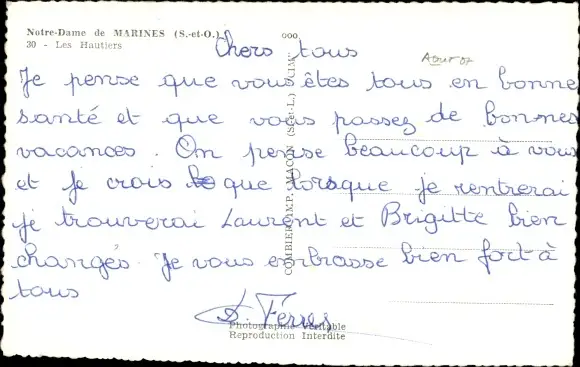 Notre-Dame de MARINES (S.-et-O.)
30 - Les Hautiers
Chers tous
Je pense que vous êtes tous en bonne
santé et que vous passez de bonnes
vacances. On pense beaucoup à vous
et je crois que lorsque je rentrerai
je trouverai Laurent et Brigitte bien
changés. Je vous embrasse bien fort à
tous
COMBIER IMP. MACON (S.-et-L.) CIM
Photographie Véritable
Reproduction Interdite